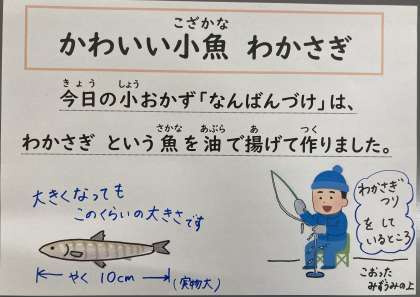 こざかな
かわいい小魚 わかさぎ
きょう しょう
今日の小おかず「なんばんづけ」は、
さかな あぶら あ つく
わかさぎ という魚を油で揚げて作りました。
大きくなっても
このくらいの大きさです
やく 10cm
(実物大)
わかさぎ
つり
をして
いるところ
こおった
みずうみの上